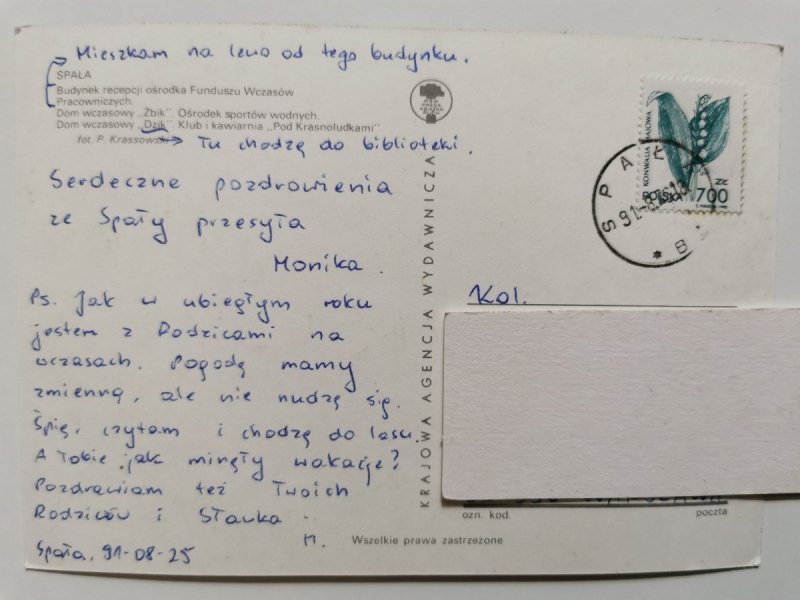 Mieszkam na lewo od tego budynku.
SPAŁA
Budynek recepcji ośrodka Funduszu Wczasów
Pracowniczych.
Dom wczasowy „Żbik”. Ośrodek sportów wodnych.
Dom wczasowy „Dzik”. Klub i kawiarnia „Pod Krasnoludkami”
fot. P. Krassowski
Tu chodzę do biblioteki.
Serdeczne pozdrowienia
ze Spały przesyła
Monika.
Ps. Jak w ubiegłym roku
jestem z Rodzicami na
wczasach. Pogodę mamy
zmienną, ale nie nudzę się.
Śpię, czytam i chodzę do lasu.
A Tobie jak minęły wakacje?
Pozdrawiam też Twoich
Rodziców i Sławka
M.
Spała, 91-08-25
KRAJOWA AGENCJA WYDAWNICZA
Wszelkie prawa zastrzeżone
KONWALIA MAJOWA
POLSKA
700 ZŁ
SPAŁA
B
Kol.
ozn. kod.
poczta